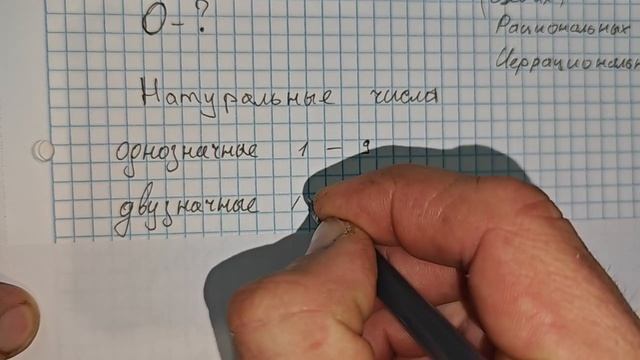 0 - ?
Рациональных
Иррациональн
Натуральные числа
однозначные 1 - 9
двузначные 1